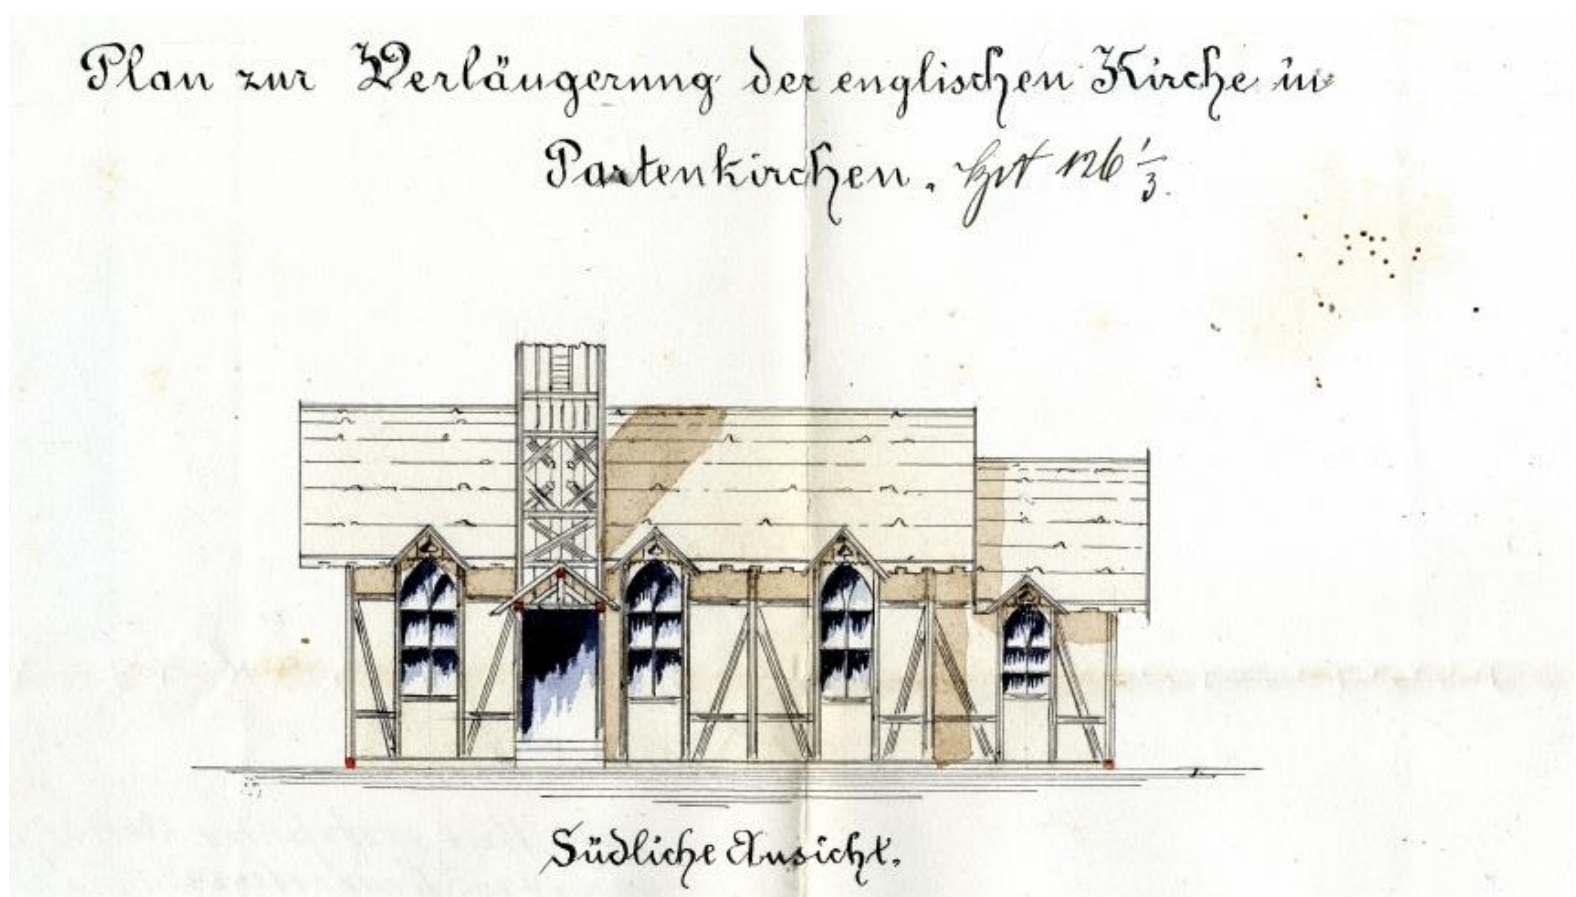 Plan zur Verlängerung der englischen Kirche in
Partenkirchen. 126 1/3.
Südliche Ansicht.